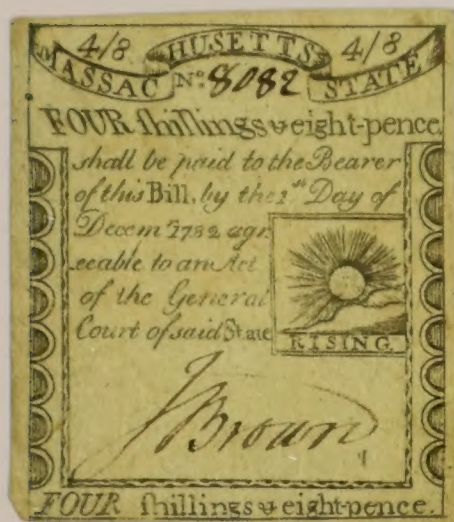 4/8 HUSETTS 4/8
MASSAC Nº 8082 STATE
FOUR ſhillings & eight-pence
shall be paid to the Bearer
of this Bill, by the 1st Day of
Decem 1782 agr
eeable to an Act
of the General
Court of said State
RISING
J Brown
FOUR ſhillings & eight-pence.